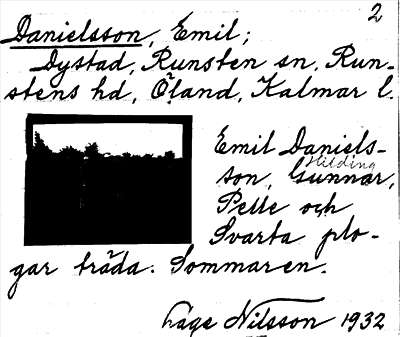 2
Danielsson, Emil;
Dystad, Runsten sn, Run-
stens hd, Öland, Kalmar l.
Emil Daniels-
Hilding
son, Gunnar,
Pelle och
Svarta plo-
gar träda. Sommaren.
Låge Nilsson 1932